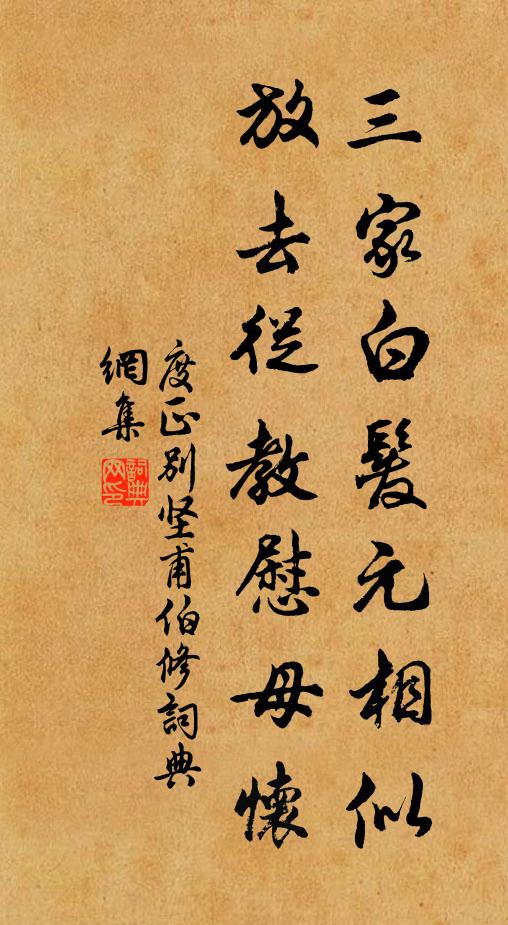 三家白髮元相似
放去從教慰母懷
度正别坚甫伯修詞典
網集
詞典
网印